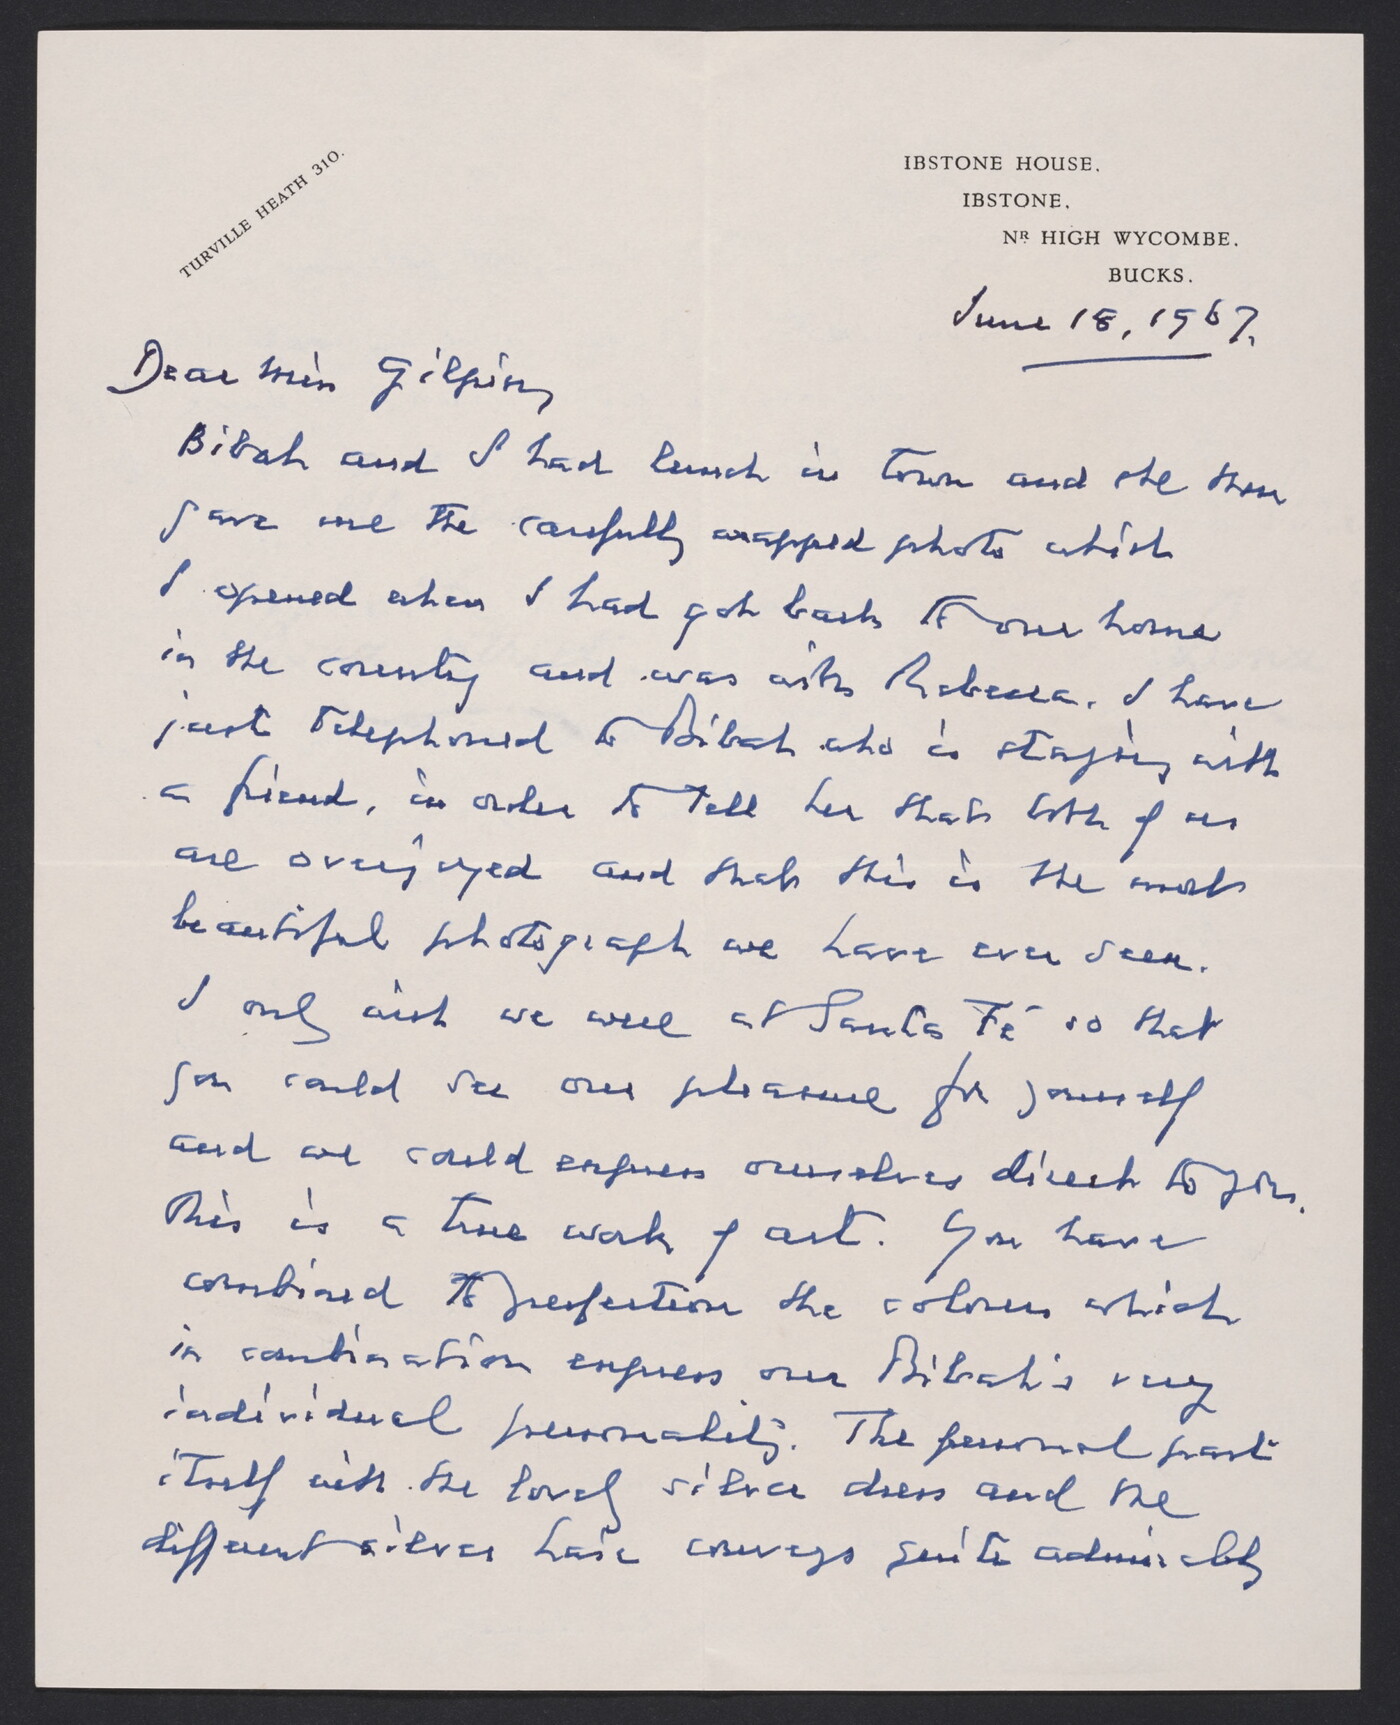 TURVILLE HEATH 310.
IBSTONE HOUSE.
IBSTONE.
NR HIGH WYCOMBE.
BUCKS.
June 18, 1967.
Dear Miss Gilpin,
Bibah and I had lunch in town and she then
gave me the carefully wrapped photo which
I opened when I had got back to our home
in the country and was with Rebecca. I have
just telephoned to Bibah who is staying with
a friend, in order to tell her that both of us
are overjoyed and that this is the most
beautiful photograph we have ever seen.
I only wish we were at Santa Fé so that
you could see our pleasure for yourself
and we could express ourselves direct to you.
This is a true work of art. You have
combined to perfection the colours which
in combination express our Bibah's very
individual personality. The personal part
itself with the lovely silver dress and the
different silver hair conveys quite admirably